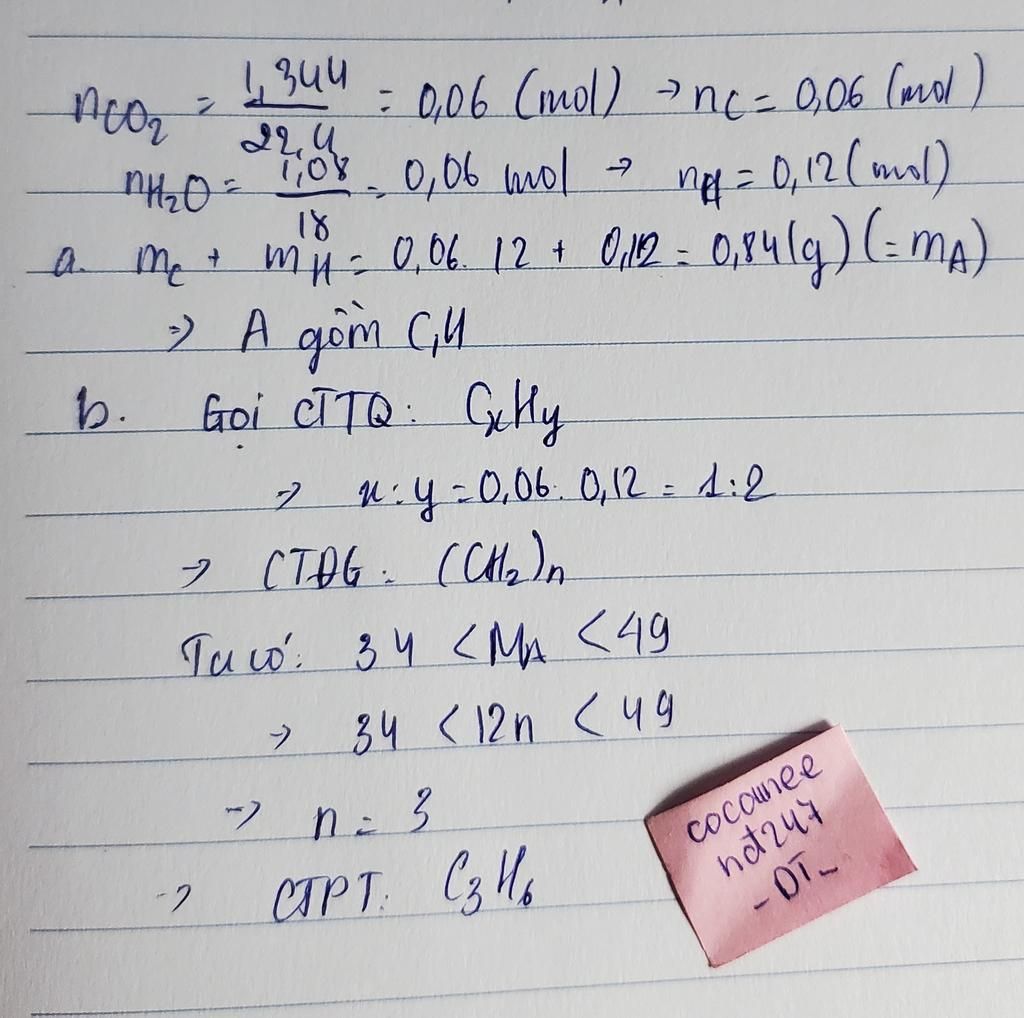 nCO2 = 1,344/22,4 = 0,06 (mol) → nC = 0,06 (mol)
nH2O = 1,08/18 = 0,06 mol → nH = 0,12 (mol)
a. mC + mH = 0,06. 12 + 0,12 = 0,84 (g) (= mA)
=> A gồm C, H
b. Gọi CTTQ: CxHy
=> x : y = 0,06 : 0,12 = 1:2
→ CTĐG: (CH2)n
Ta có: 34 < MA < 49
→ 34 < 12n < 49
→ n = 3
→ CTPT: C3H6
cocounee
nđt247
- DT -